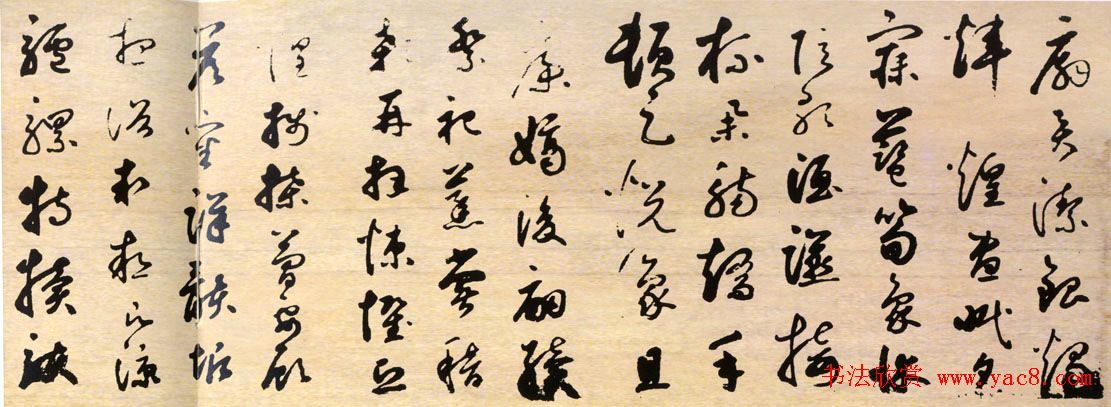 扇圓潔銀燭
煒煌晝眠夕
寐藍笋象床
弦歌酒讌接
杯舉觴矯手
頓足悅豫且
康嫡後嗣續
祭祀蒸嘗稽
顙再拜悚懼恐
惶牋牒簡要顧
答審詳骸垢
想浴執熱願涼
驢騾特犢駭
书法欣赏 www.yac8.com